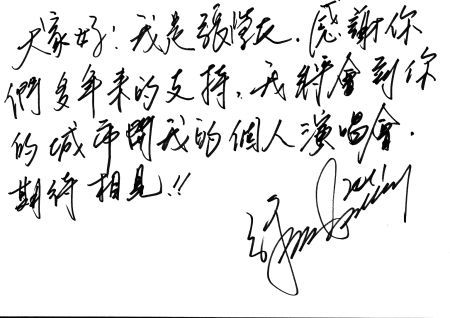 大家好！我是張學友．感謝你
們多年来的支持，我將會到你
的城市開我的個人演唱會．
期待相見！！